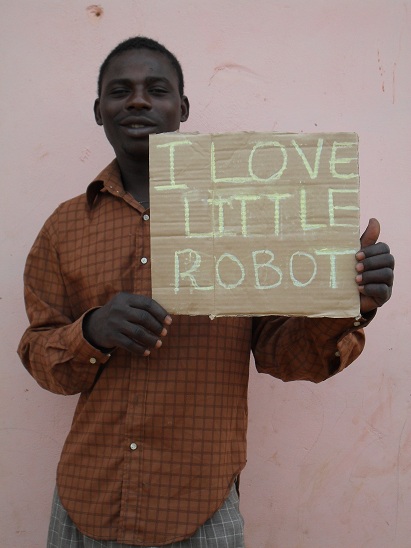 I LOVE
LITTLE
ROBOT